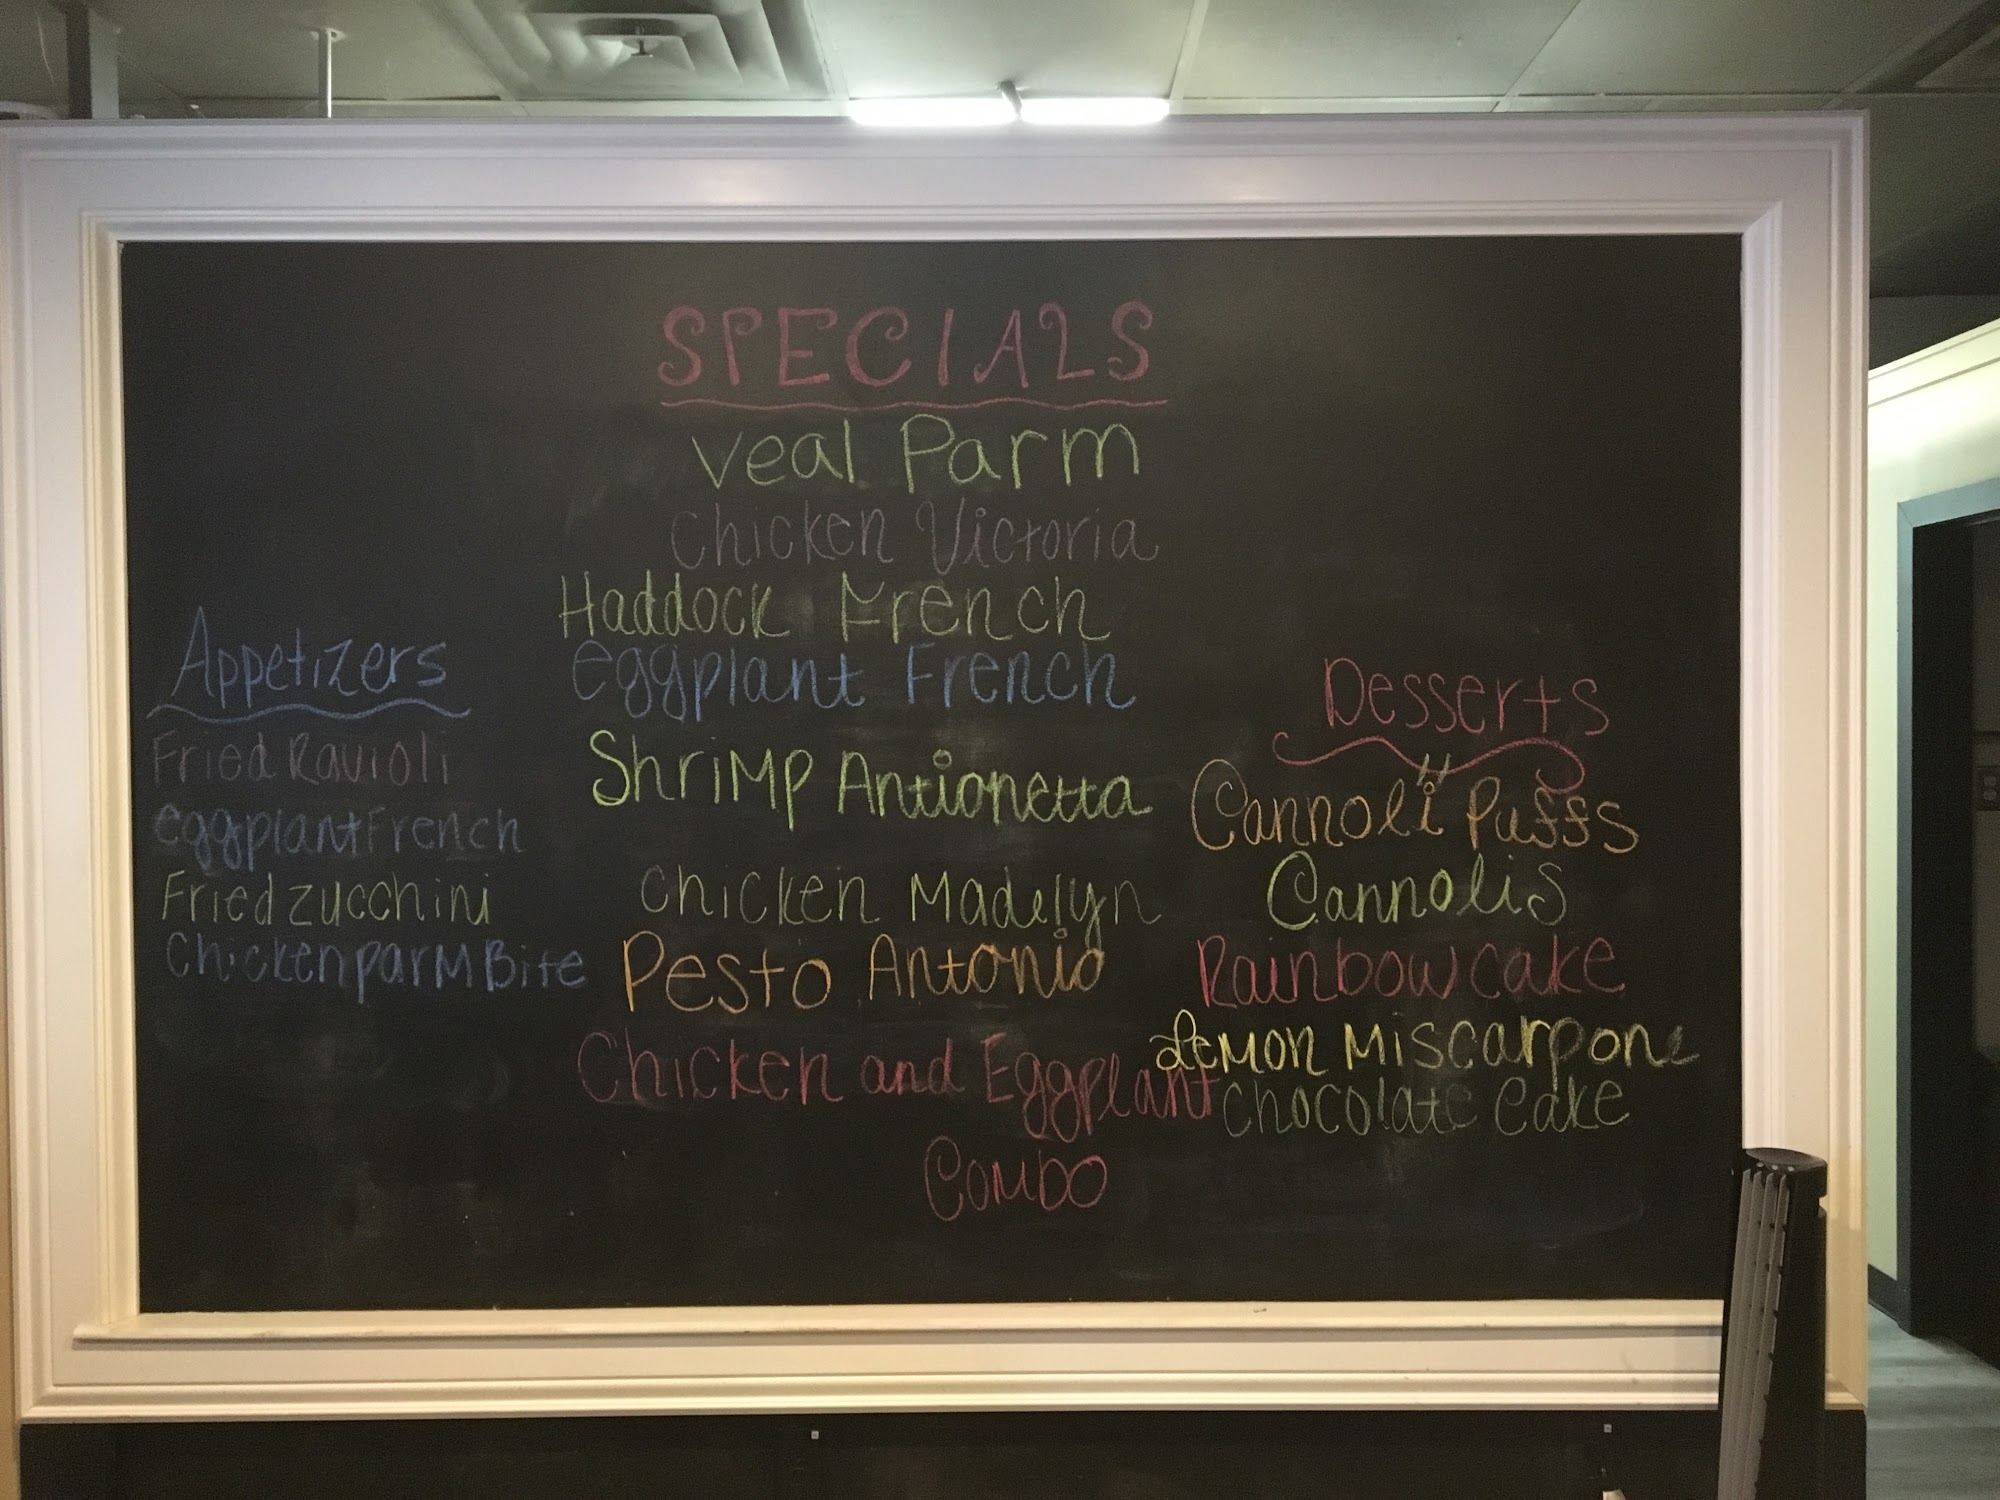 SPECIALS
Veal Parm
Chicken Victoria
Haddock French
eggplant French
Shrimp Antionetta
Chicken Madelyn
Pesto Antonio
Chicken and Eggplant
Combo
Appetizers
Fried Ravioli
eggplant French
Fried zucchini
Chicken parm Bite
Desserts
Cannoli Puffs
Cannolis
Rainbow cake
Lemon Miscarpone
Chocolate Cake